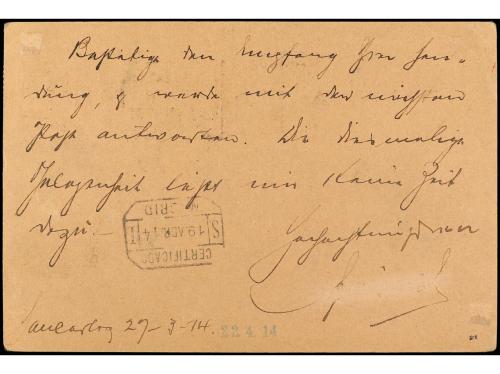 Bestätige den Empfang Ihrer Sen-
dung, & werde mit der nächsten
Post antworten. Die diesmalige
Gelegenheit läßt mir keine Zeit
dazu.-
Hochachtungsvoll
CERTIFICADO
19 ABR 14
MADRID
San Carlos 27-3-14.
22 4 14